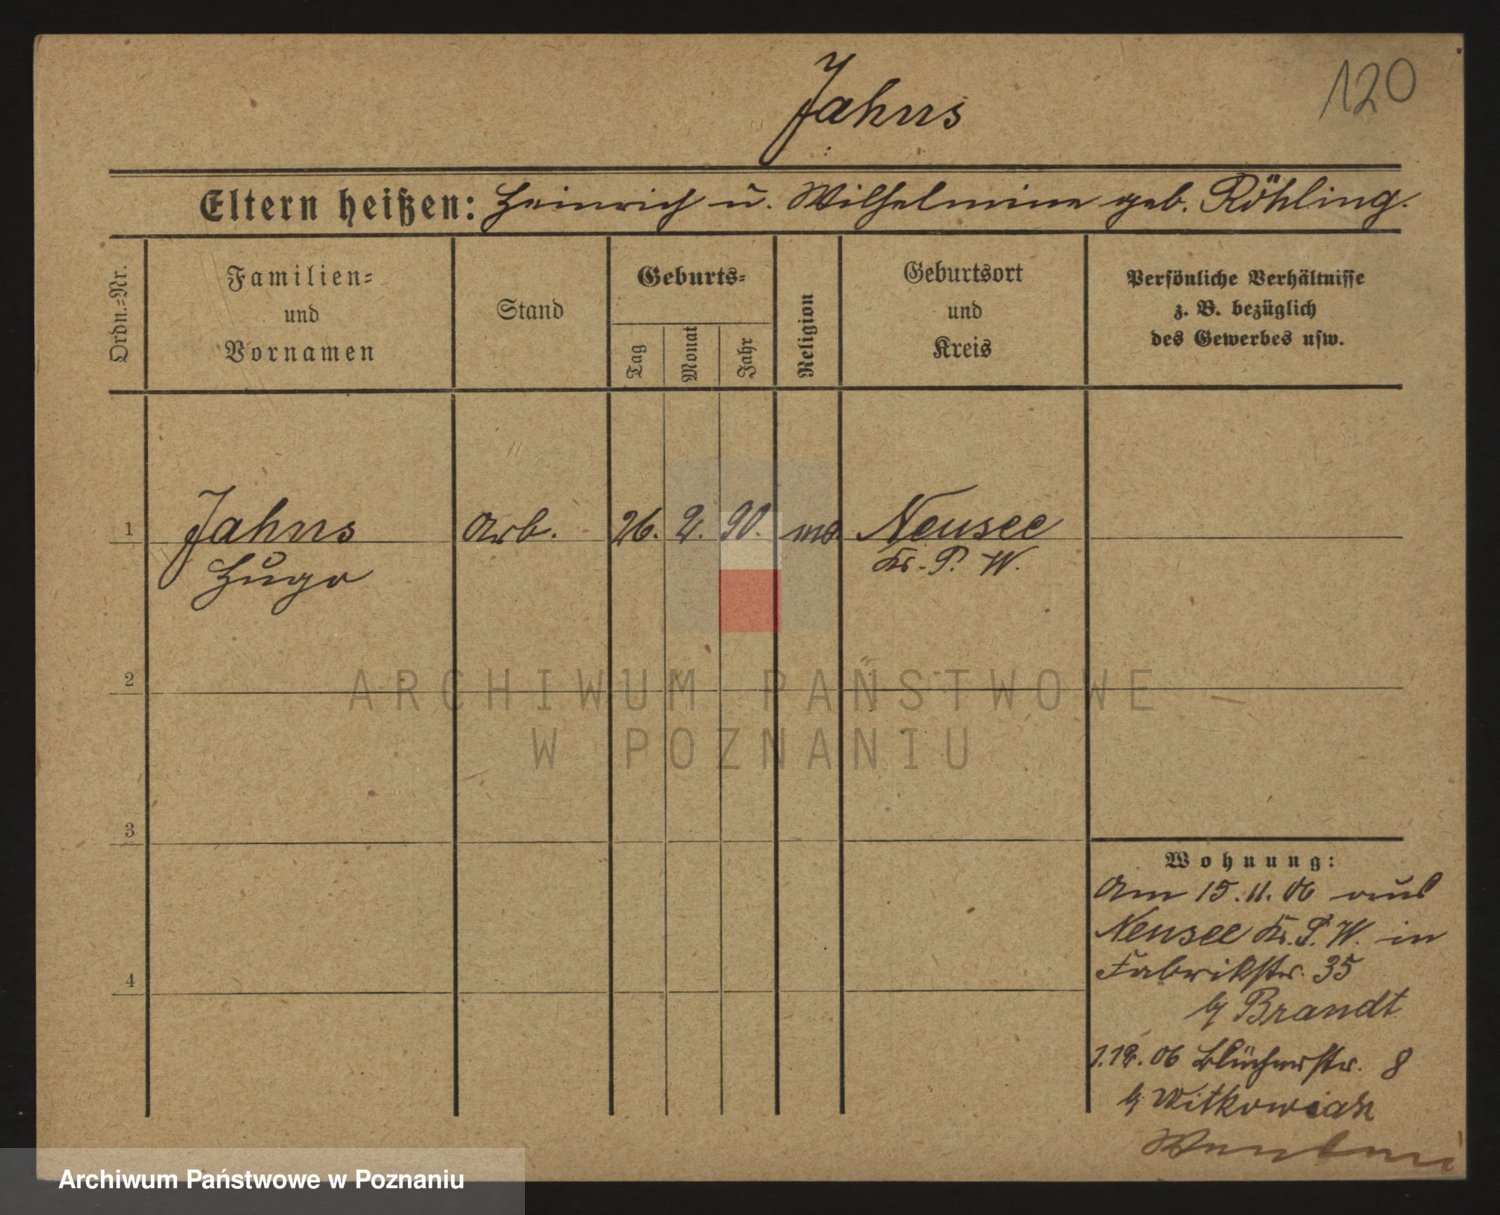 Jahns
120
Eltern heißen: Heinrich u. Wilhelmine geb. Röhling.
Ordn.-Nr.
Familien-
und
Vornamen
Stand
Geburts-
Tag
Monat
Jahr
Religion
Geburtsort
und
Kreis
Persönliche Verhältnisse
z. B. bezüglich
des Gewerbes usw.
1
Jahns
Hugo
Arb.
26. 2. 90.
Neusee
Kr. P. W.
2
ARCHIWUM PAŃSTWOWE
W POZNANIU
3
4
Wohnung:
Am 15.11.06 aus
Neusee Kr. P. W. in
Fabrikstr. 35
b/ Brandt
1.12.06 Blücherstr. 8
b/ Witkowiak
Archiwum Państwowe w Poznaniu